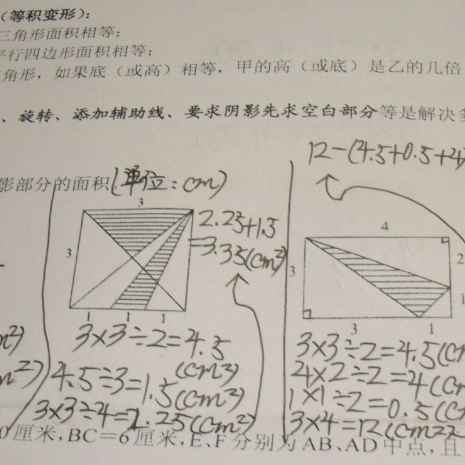 （等积变形）：
三角形面积相等；
平行四边形面积相等；
角形，如果底（或高）相等，甲的高（或底）是乙的几倍
、旋转、添加辅助线、要求阴影先求空白部分等是解决
12-(4.5+0.5+4
影部分的面积(单位:cm)
3
3
1 1 1
2.25+1.5
=3.35(cm²)
3×3÷2=4.5
(cm²)
4.5÷3=1.5(cm²)
3×3÷4=2.25(cm²)
4
3
2
1
3 1
3×3÷2=4.5(c
4×2÷2=4(c
1×1÷2=0.5(c
3×4=12(cm²
0厘米,BC=6厘米,E、F分别为AB、AD中点,且